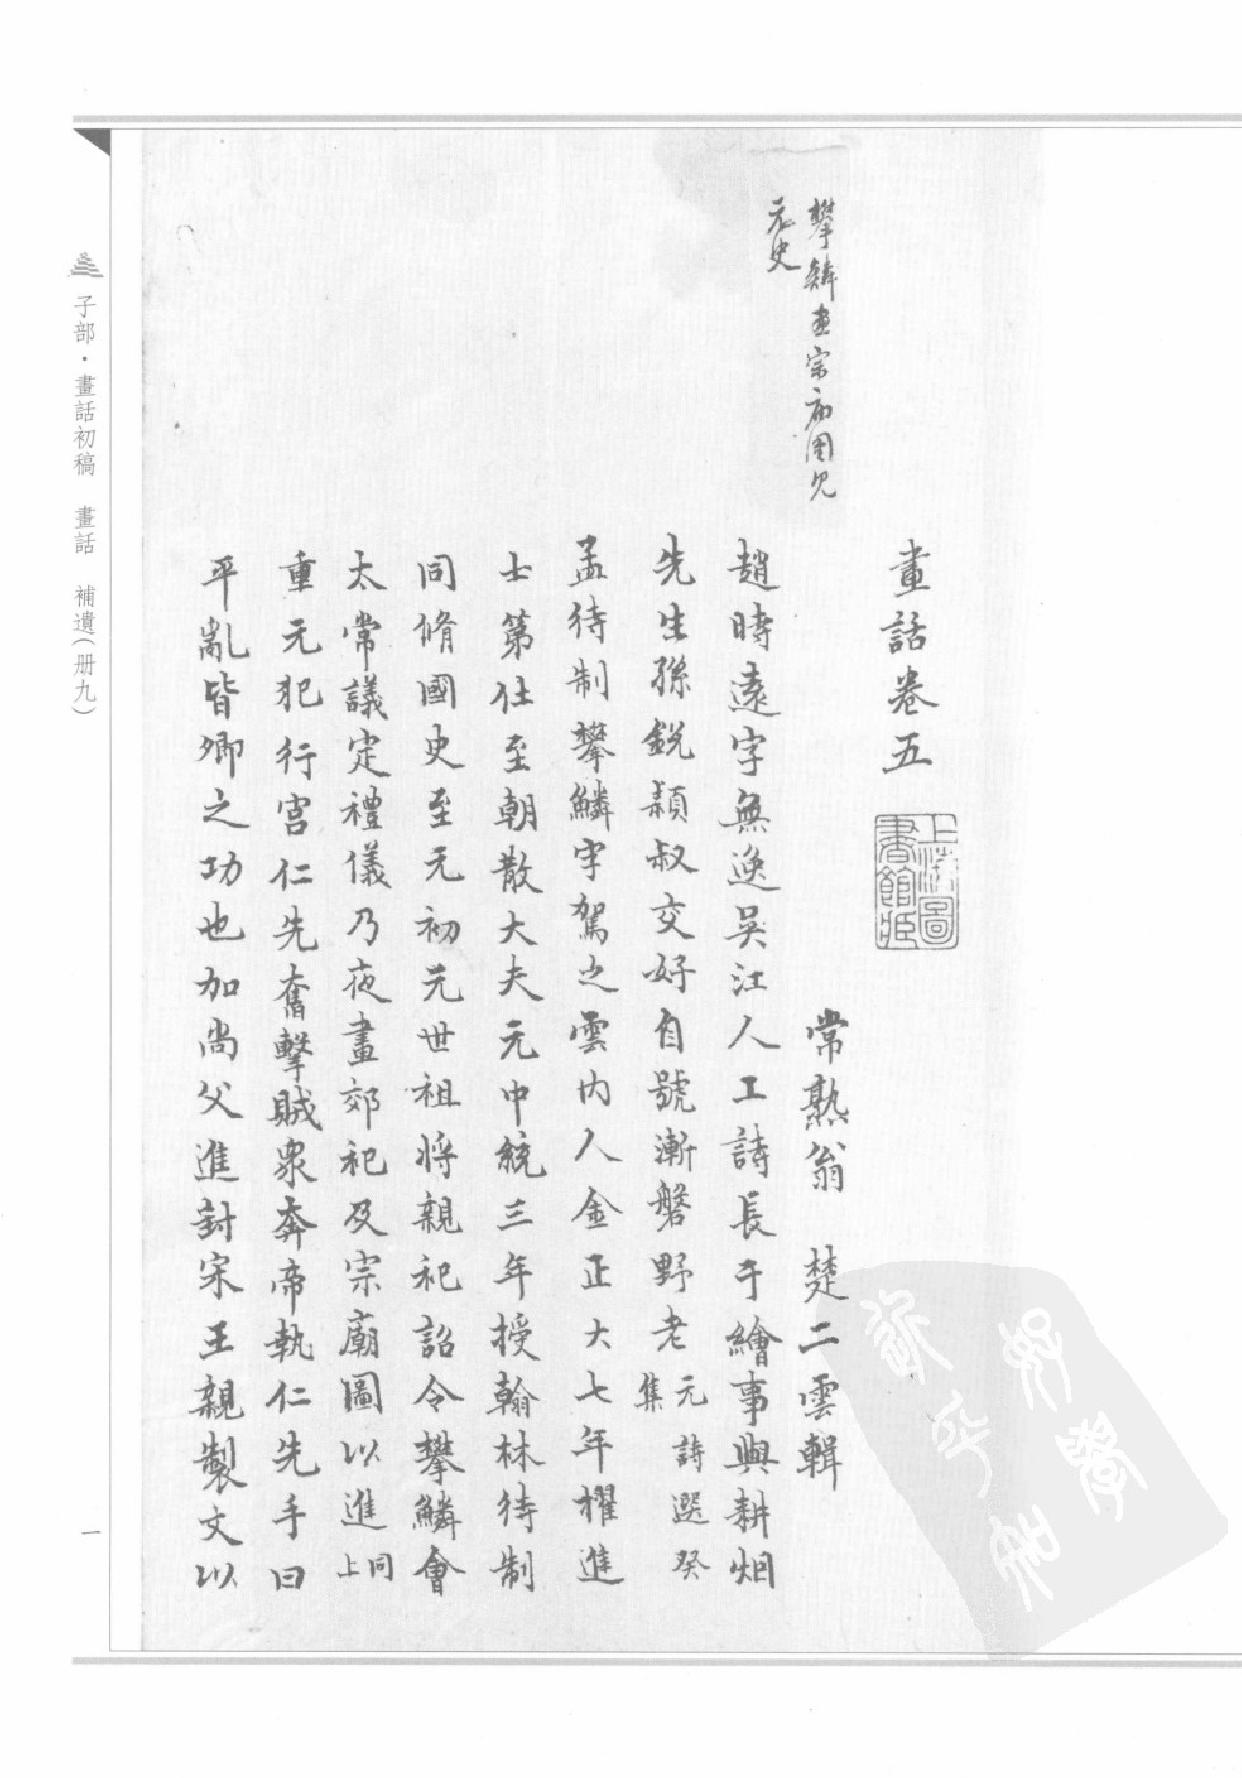 攀鱗畫宗廟圖見
元史
畫話卷五
上海圖書館藏
常熟翁 楚二雲輯
趙時遠字無逸吳江人工詩長于繪事與耕烟
先生孫銳頴叔交好自號漸磐野老元詩選癸集
孟待制攀鱗字駕之雲內人金正大七年擢進
士第仕至朝散大夫元中統三年授翰林待制
同脩國史至元初元世祖將親祀詔令攀鱗會
太常議定禮儀乃夜畫郊祀及宗廟圖以進同上
重元犯行宮仁先奮擊賊衆奔帝執仁先手曰
平亂皆卿之功也加尚父進封宋王親製文以
子部·畫話初稿 畫話 補遺(册九)
一